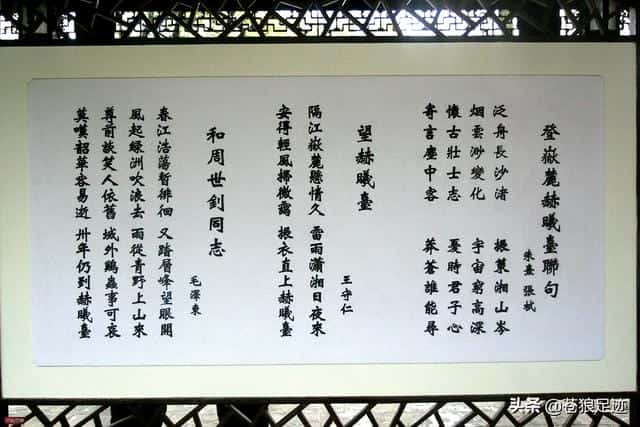 登嶽麓赫曦臺聯句
朱熹 張栻
泛舟長沙渚 振策湘山岑
烟雲渺變化 宇宙窮高深
懷古壯士志 憂時君子心
寄言塵中客 莽蒼誰能尋
望赫曦臺
王守仁
隔江嶽麓懸情久 雷雨瀟湘日夜來
安得輕風掃微靄 振衣直上赫曦臺
和周世釗同志
毛澤東
春江浩蕩暫徘徊 又踏層峰望眼開
風起綠洲吹浪去 雨從青野上山來
尊前談笑人依舊 域外鷄蟲事可哀
莫嘆韶華容易逝 卅年仍到赫曦臺
头条 @苍狼足迹